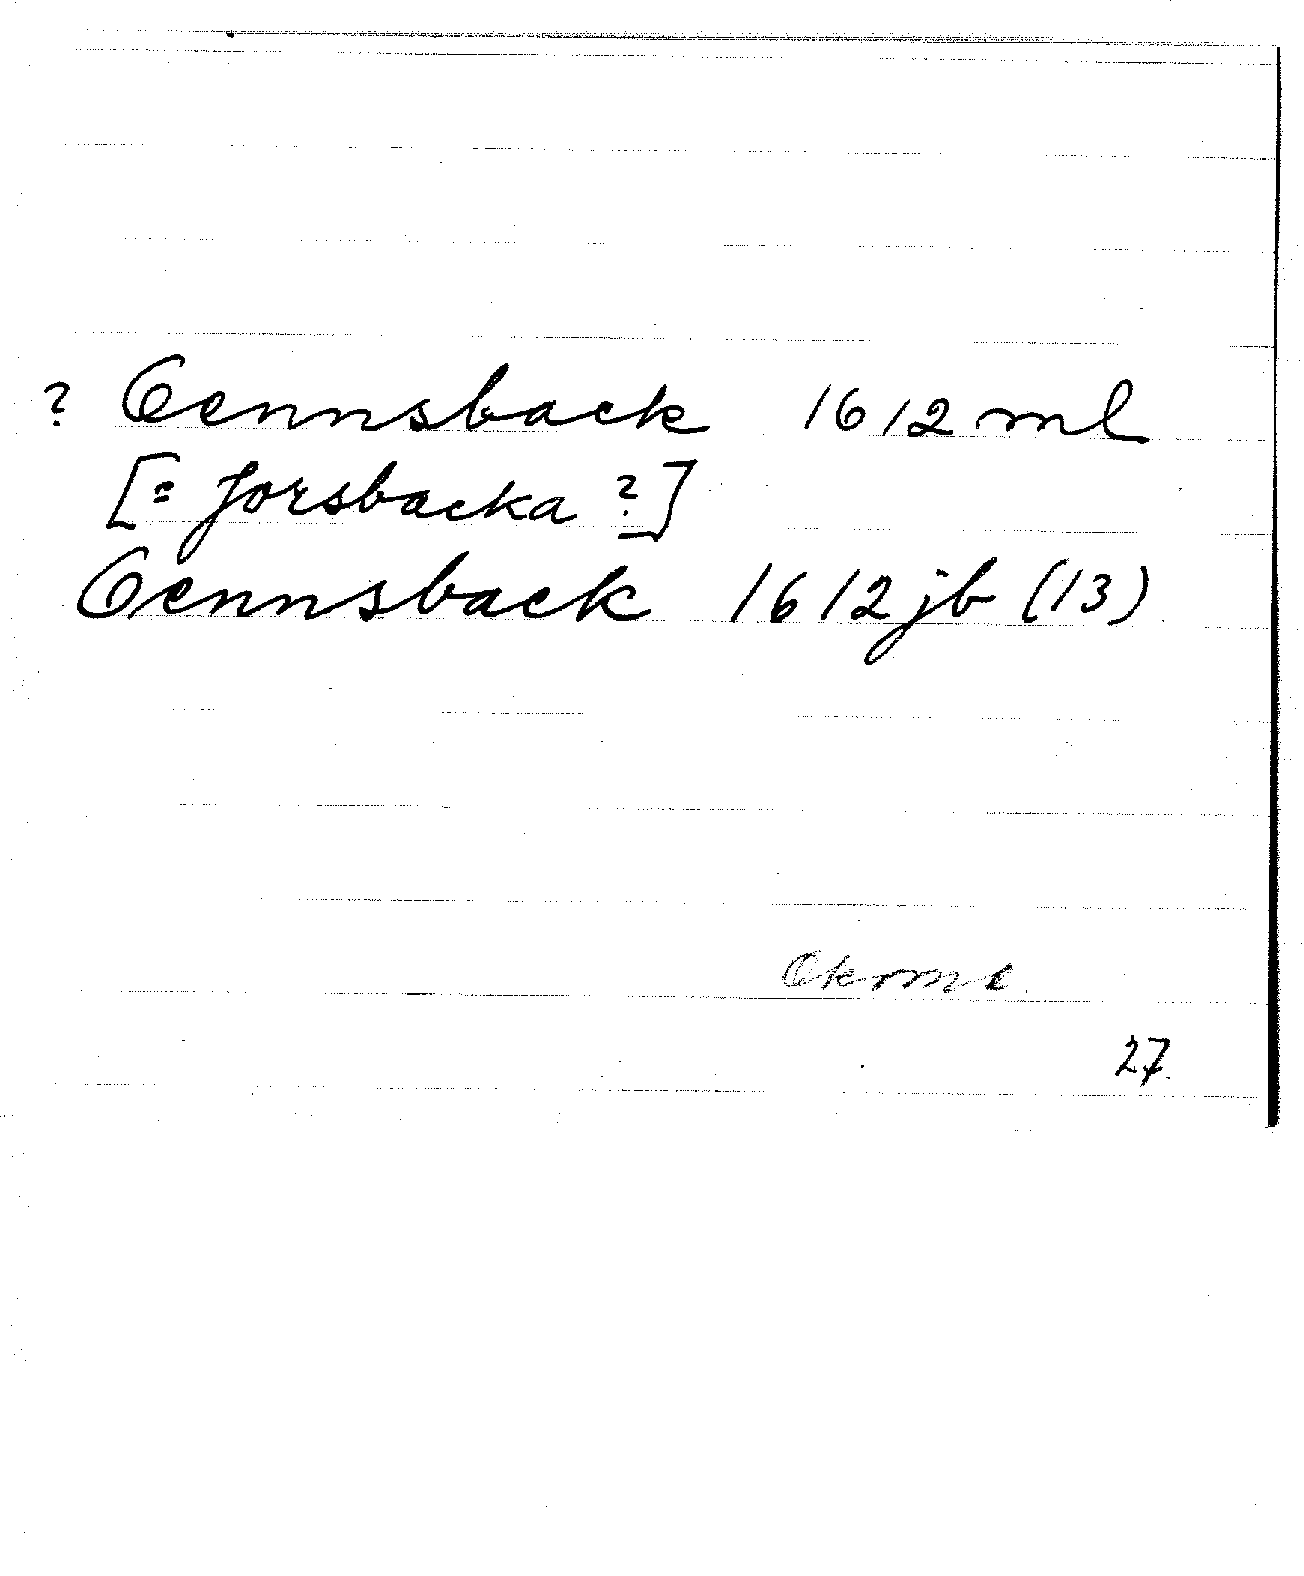 ? Oennsback 1612 ml
[= forsbacka ?]
Oennsback 1612 jb (13)
Okome
27